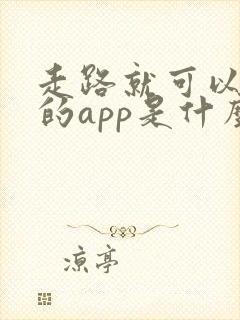 走路就可以
的app是什么
凉亭